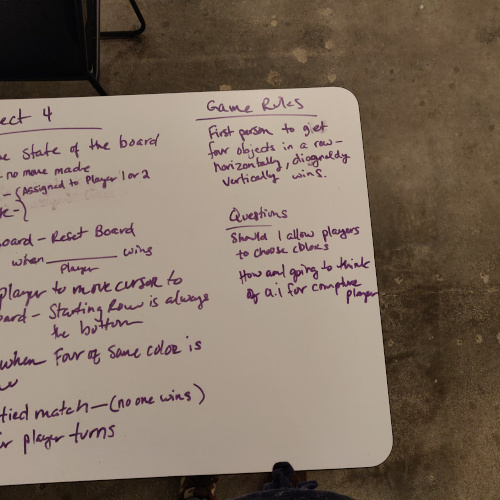 ect 4
e State of the board
- no move made
- (Assigned to Player 1 or 2
te -
oard - Reset Board
when ________ wins
Player
player to move cursor to
oard - Starting Row is always
the bottom
when Four of Same color is
w
tied match - (no one wins)
r player turns
Game Rules
First person to get
four objects in a row -
horizontally, diagonally
vertically wins.
Questions
Should I allow players
to choose colors
How am I going to think
of a.i for
player